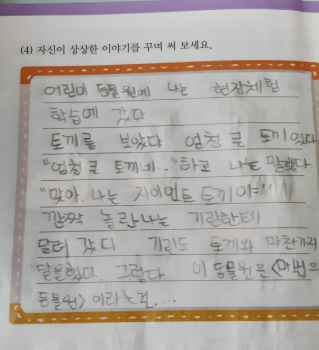 (4) 자신이 상상한 이야기를 꾸며 써 보세요.
어린이 동물원에 나는 현장체험
학습에 갔다
토끼를 보았다 엄청 큰 토끼였다
"엄청 큰 토끼네.."하고 나도 말했다
"맞아. 나는 자이언트 토끼야"
깜짝 놀란 나는 기린한테
달려 갔다 기린도 토끼와 마찬가지
말을했다. 그렇다 이 동물원은 <마법의
동물원> 이라는걸...